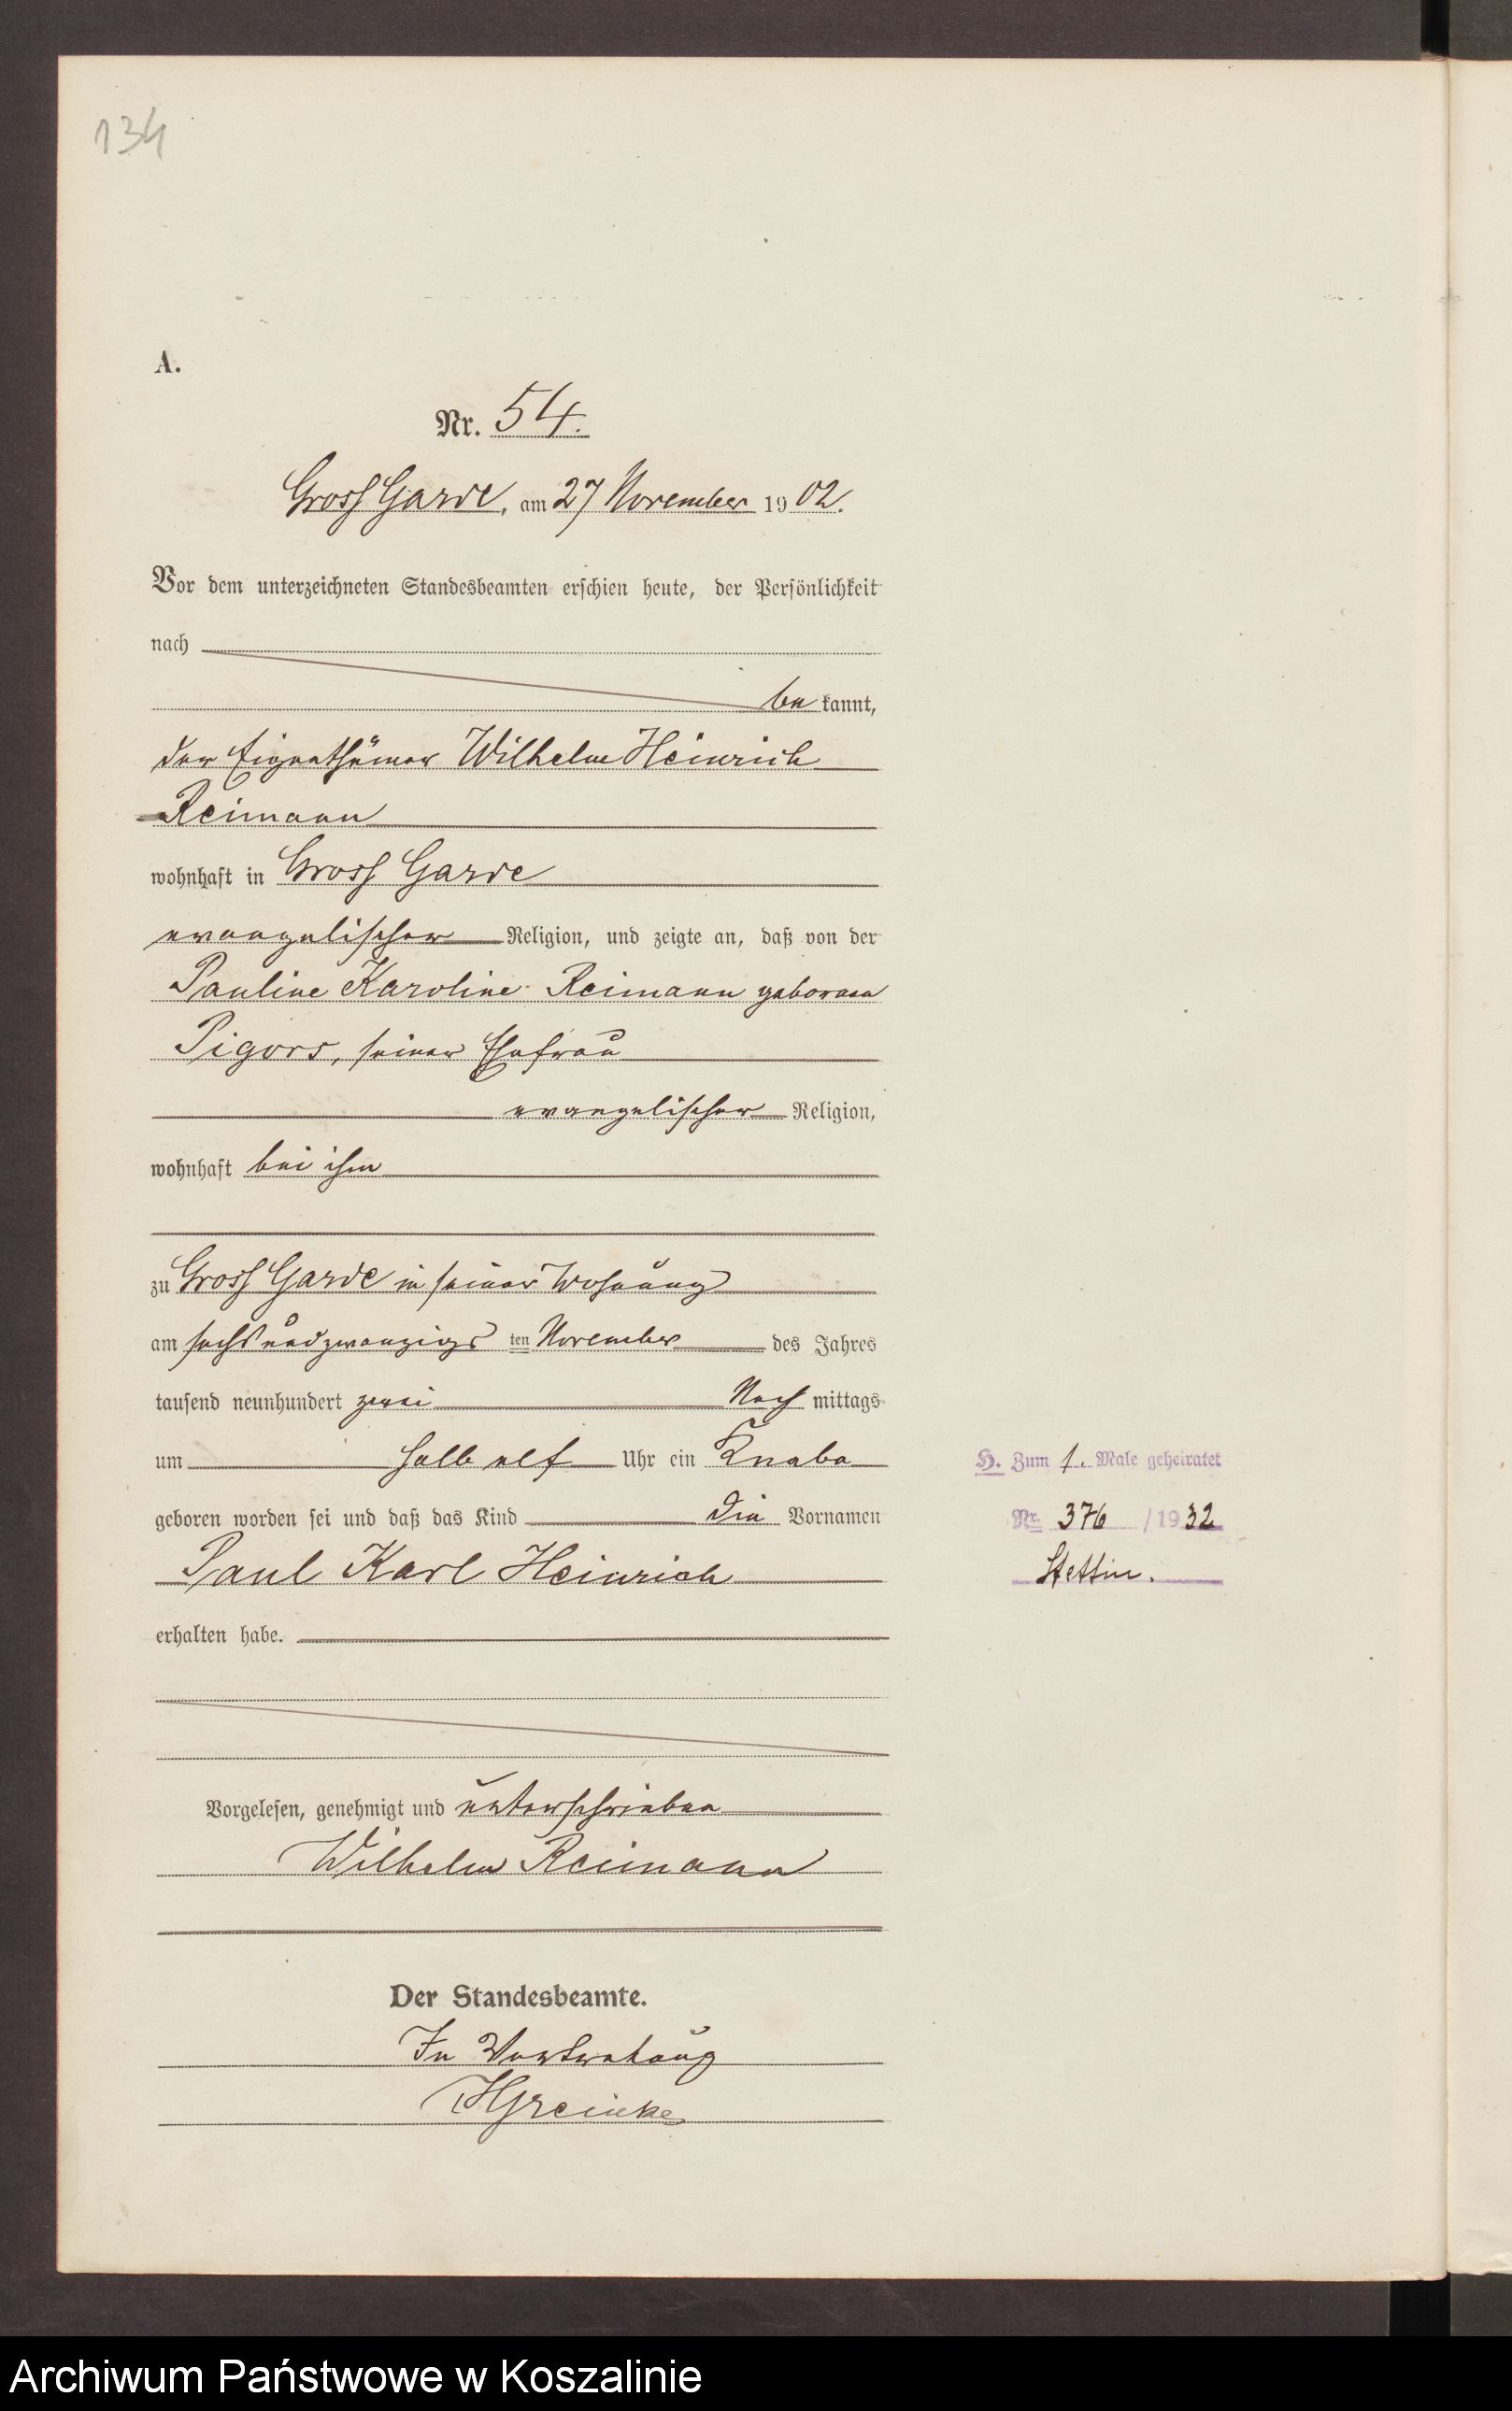 134
A.
Nr. 54.
Gross Garde, am 27 November 1902.
Vor dem unterzeichneten Standesbeamten erschien heute, der Persönlichkeit
nach
be kannt,
der Eigenthümer Wilhelm Heinrich
Reimann
wohnhaft in Gross Garde
evangelischer Religion, und zeigte an, daß von der
Pauline Karoline Reimann geborenen
Pigors, seiner Ehefrau
evangelischer Religion,
wohnhaft bei ihm
zu Gross Garde in seiner Wohnung
am sechsundzwanzigs ten November des Jahres
tausend neunhundert zwei Nach mittags
um halb elf Uhr ein Knabe
geboren worden sei und daß das Kind die Vornamen
Paul Karl Heinrich
erhalten habe.
H. Zum 1. Male geheiratet
Nr. 376 /1932
Stettin.
Vorgelesen, genehmigt und unterschrieben
Wilhelm Reimann
Der Standesbeamte.
In Vertretung
HGreinke
Archiwum Państwowe w Koszalinie